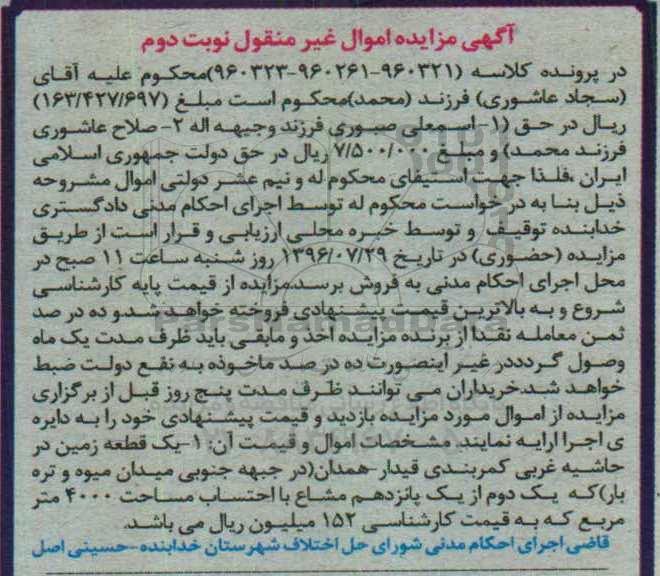 آگهی مزایده اموال غیر منقول نوبت دوم
در پرونده کلاسه (۹۶۰۳۲۱-۹۶۰۲۶۱-۹۶۰۳۲۳)محکوم علیه آقای
(سجاد عاشوری) فرزند (محمد)محکوم است مبلغ (۱۶۳/۴۲۷/۶۹۷)
ریال در حق (۱- اسمعلی صبوری فرزند وجیهه اله ۲- صلاح عاشوری
فرزند محمد) و مبلغ ۷/۵۰۰/۰۰۰ ریال در حق دولت جمهوری اسلامی
ایران ،فلذا جهت استیفای محکوم له و نیم عشر دولتی اموال مشروحه
ذیل بنا به درخواست محکوم له توسط اجرای احکام مدنی دادگستری
خدابنده توقیف و توسط خبره محلی ارزیابی و قرار است از طریق
مزایده (حضوری) در تاریخ ۱۳۹۶/۰۷/۲۹ روز شنبه ساعت ۱۱ صبح در
محل اجرای احکام مدنی به فروش برسد.مزایده از قیمت پایه کارشناسی
شروع و به بالاترین قیمت پیشنهادی فروخته خواهد شد.و ده در صد
ثمن معامله نقدا از برنده مزایده اخذ و مابقی باید ظرف مدت یک ماه
وصول گردددر غیر اینصورت ده در صد ماخوذه به نفع دولت ضبط
خواهد شد.خریداران می توانند ظرف مدت پنج روز قبل از برگزاری
مزایده از اموال مورد مزایده بازدید و قیمت پیشنهادی خود را به دایره
ی اجرا ارایه نمایند. مشخصات اموال و قیمت آن: ۱-یک قطعه زمین در
حاشیه غربی کمربندی قیدار-همدان(در جبهه جنوبی میدان میوه و تره
بار)که یک دوم از یک پانزدهم مشاع با احتساب مساحت ۴۰۰۰ متر
مربع که به قیمت کارشناسی ۱۵۲ میلیون ریال می باشد.
قاضی اجرای احکام مدنی شورای حل اختلاف شهرستان خدابنده-حسینی اصل